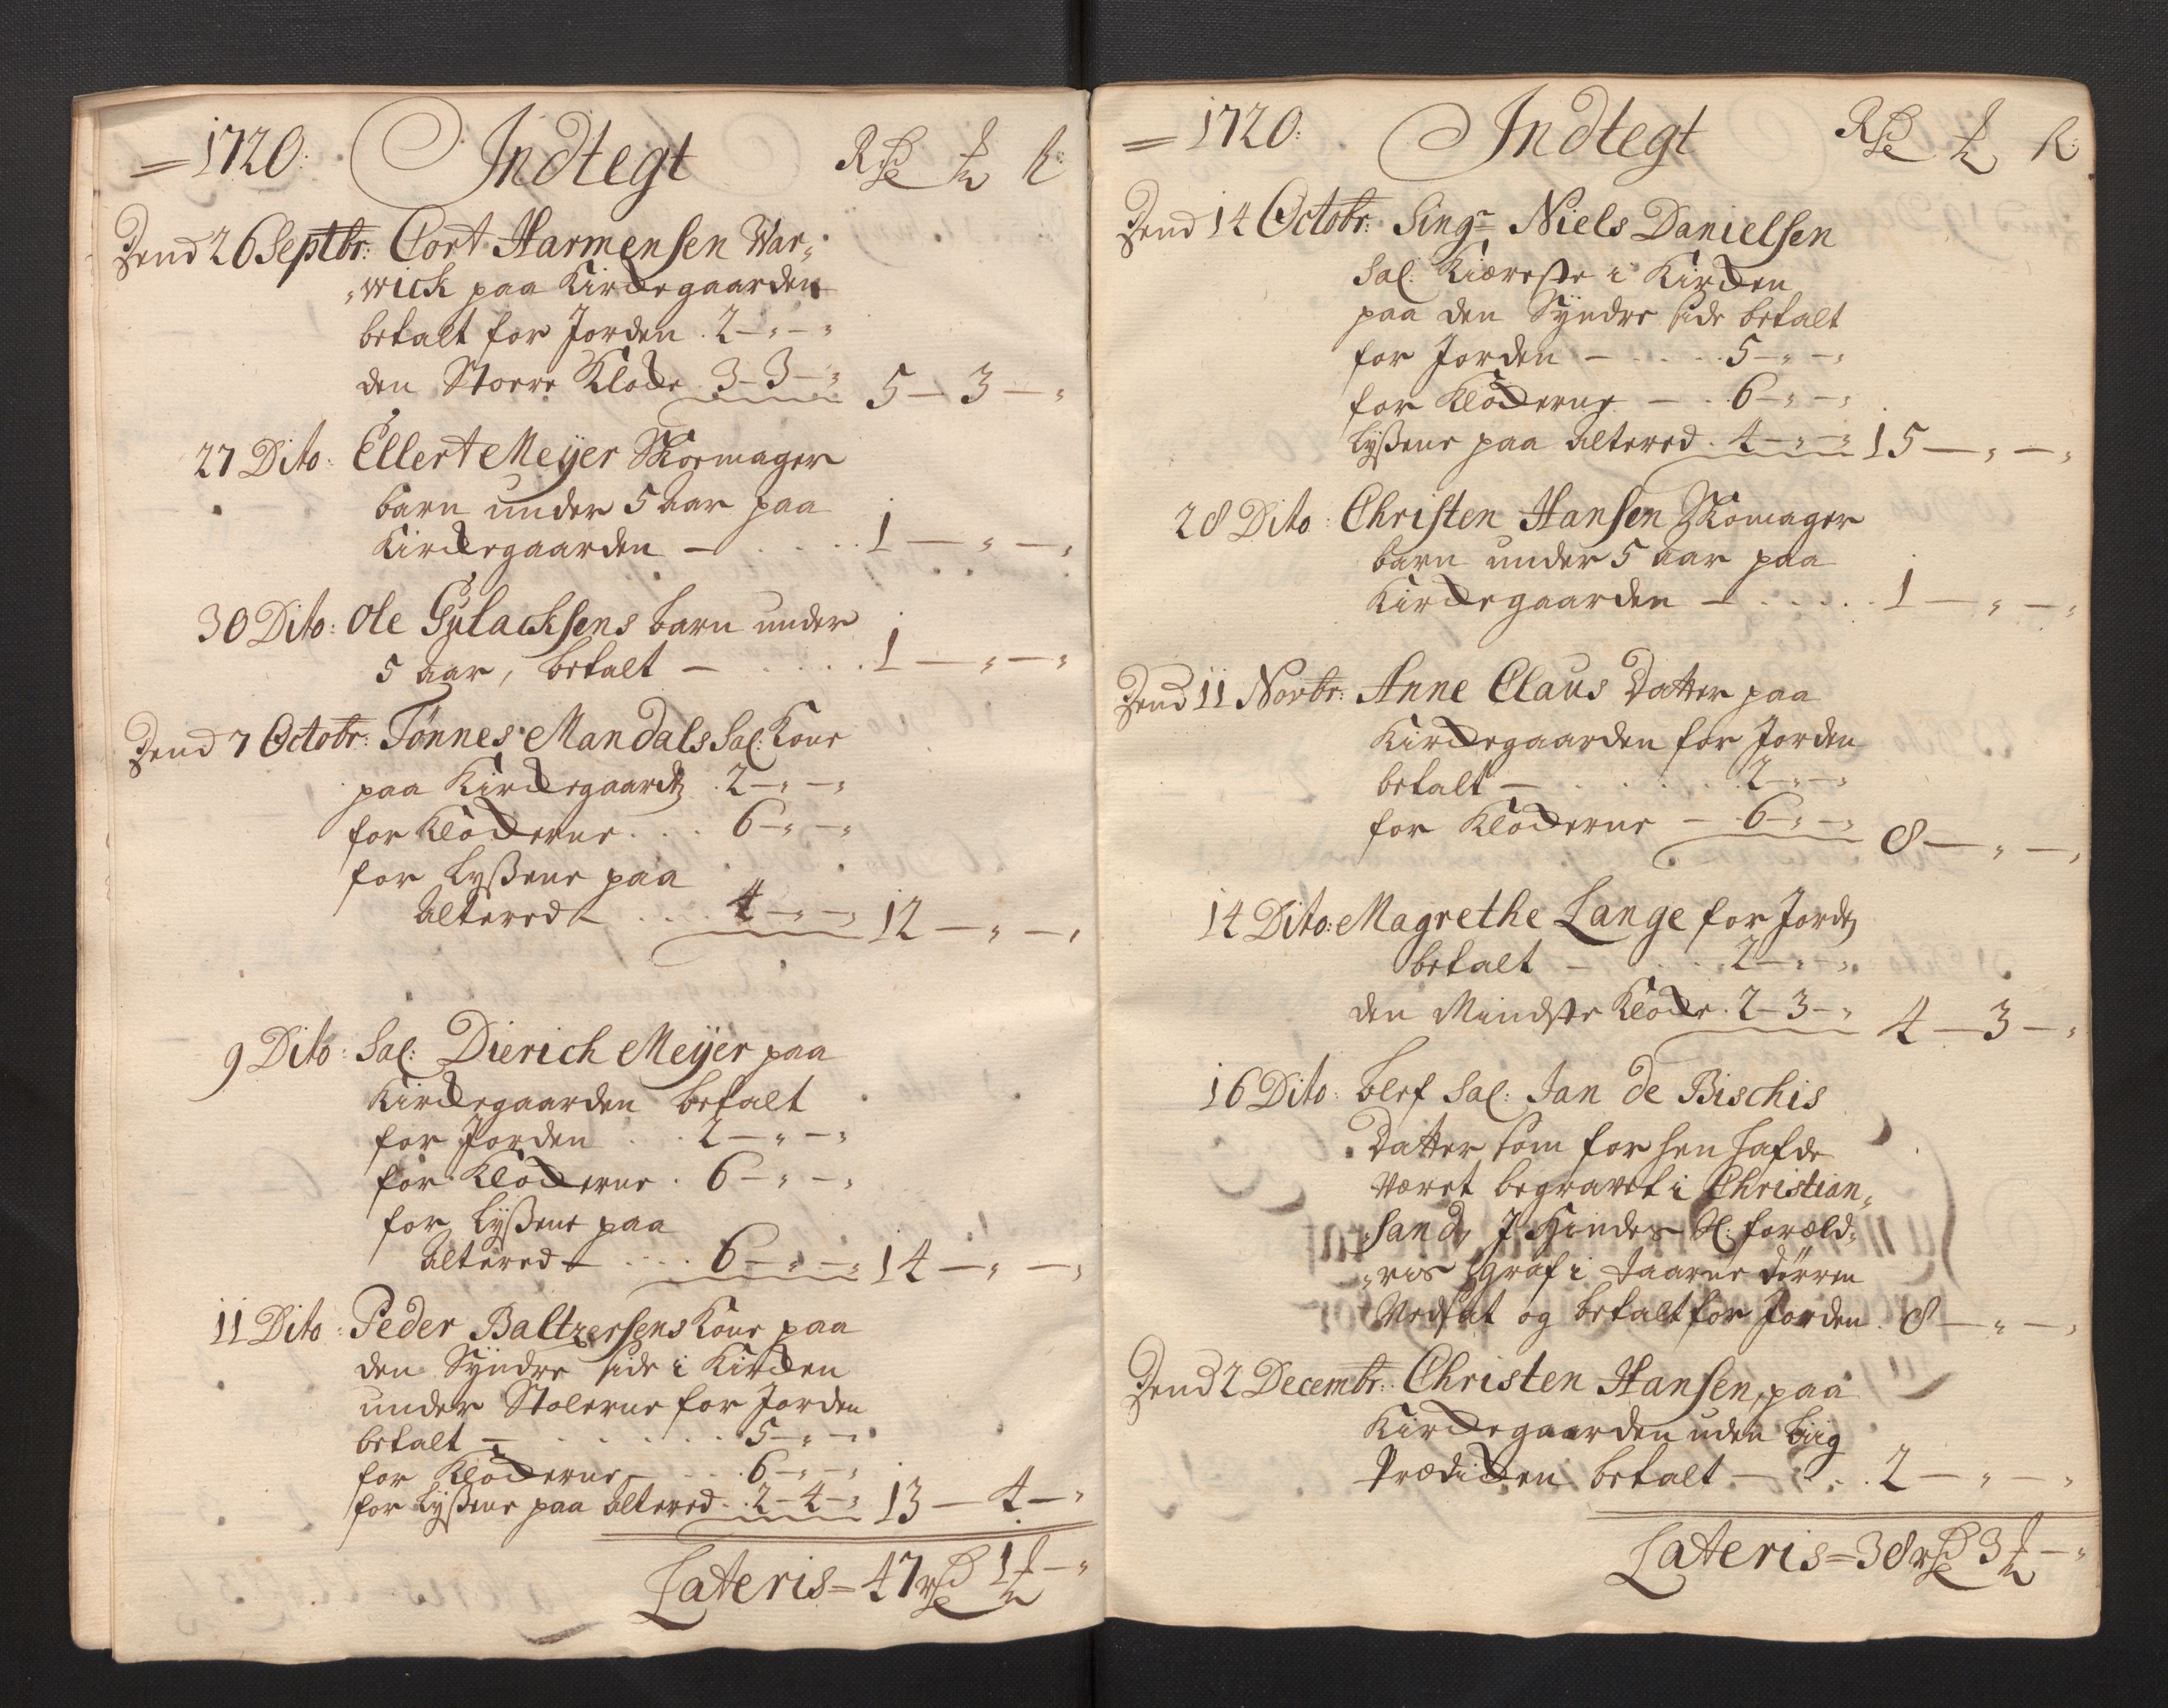 1720: Indtegt Rdr ℔ ß:
Dend 26 Septbr: Cort Harmensen War„
„wick paa Kirckegaarden
betalt for Jorden . 2 — „ — „
den Storre Klocke . 3 — 3 — „ 5 — 3 — „
27 Dito: Ellert Meÿer Skoemager
barn under 5 aar paa
Kirckegaarden — . . . . 1 — „ — „
30 Dito: Ole Gulacksens barn under
5 aar, betalt — . . . . 1 — „ — „
Dend 7 Octobr: Tönnes Mandals Sal: Kone
paa Kirckegaarden . 2 — „ — „
for Klockerne . . . 6 — „ — „
for Lyßene paa
altered — . . . . 4 — „ — „ 12 — „ — „
9 Dito: Sal: Dierich Meÿer paa
Kirckegaarden betalt
for Jorden . . . 2 — „ — „
for Klockerne . 6 — „ — „
for Lÿßene paa
altered — . . . . 6 — „ — „ 14 — „ — „
11 Dito: Peder Baltzersens Kone paa
den Sÿndre side i Kircken
under Stolerne for Jorden
betalt — . . . . . . 5 — „ — „
for Klockerne — . . . 6 — „ — „
for Lyßene paa altered . . 2 — 4 — „ 13 — 4 — „
Lateris = 47 rdr 1 ℔ — „
1720: Indtegt Rdr ℔ ß:
Dend 14 Octobr: Singr Niels Danielsen
Sal: Kiæreste i Kircken
paa den Sÿndre side betalt
for Jorden — . . . . 5 — „ — „
for Klockerne — . . 6 — „ — „
Lyßene paa altered . 4 — „ — „ 15 — „ — „
28 Dito: Christen Hansen Skomager
barn under 5 aar paa
Kirckegaarden — . . . . . 1 — „ — „
Dend 11 Novbr: Anne Claus Datter paa
Kirckegaarden for Jorden
betalt — . . . . . . 2 — „ — „
for Klockerne — . 6 — „ — „ 8 — „ — „
14 Dito: Magrethe Lange for Jorden
betalt — . . . 2 — „ — „
den Mindste Klocke . 2 — 3 — „ 4 — 3 — „
16 Dito: blef Sal: Jan de Bischis
Datter som for hen hafde
været begravet i Christian„
„Sand, J Hindes Sl: foræld„
„ris graf i Taarne dörren
Nedsat og betalt for Jorden . 8 — „ — „
Dend 2 Decembr: Christen Hansen, paa
Kirckegaarden uden Liig
Prædicken betalt — . . . 2 — „ — „
Lateris = 38 rdr 3 ℔ — „